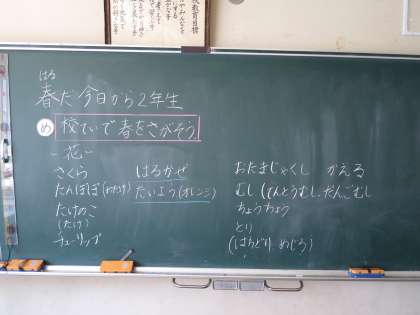 はる
春だ 今日から2年生
め 校ていで春をさがそう
-花-
さくら
たんぽぽ(わたげ)
たけのこ
(たけ)
チューリップ
はるかぜ
たいよう(オレンジ)
おたまじゃくし かえる
むし(てんとうむし.だんごむし
ちょうちょう
とり
(はちどり.めじろ)
校教育目標